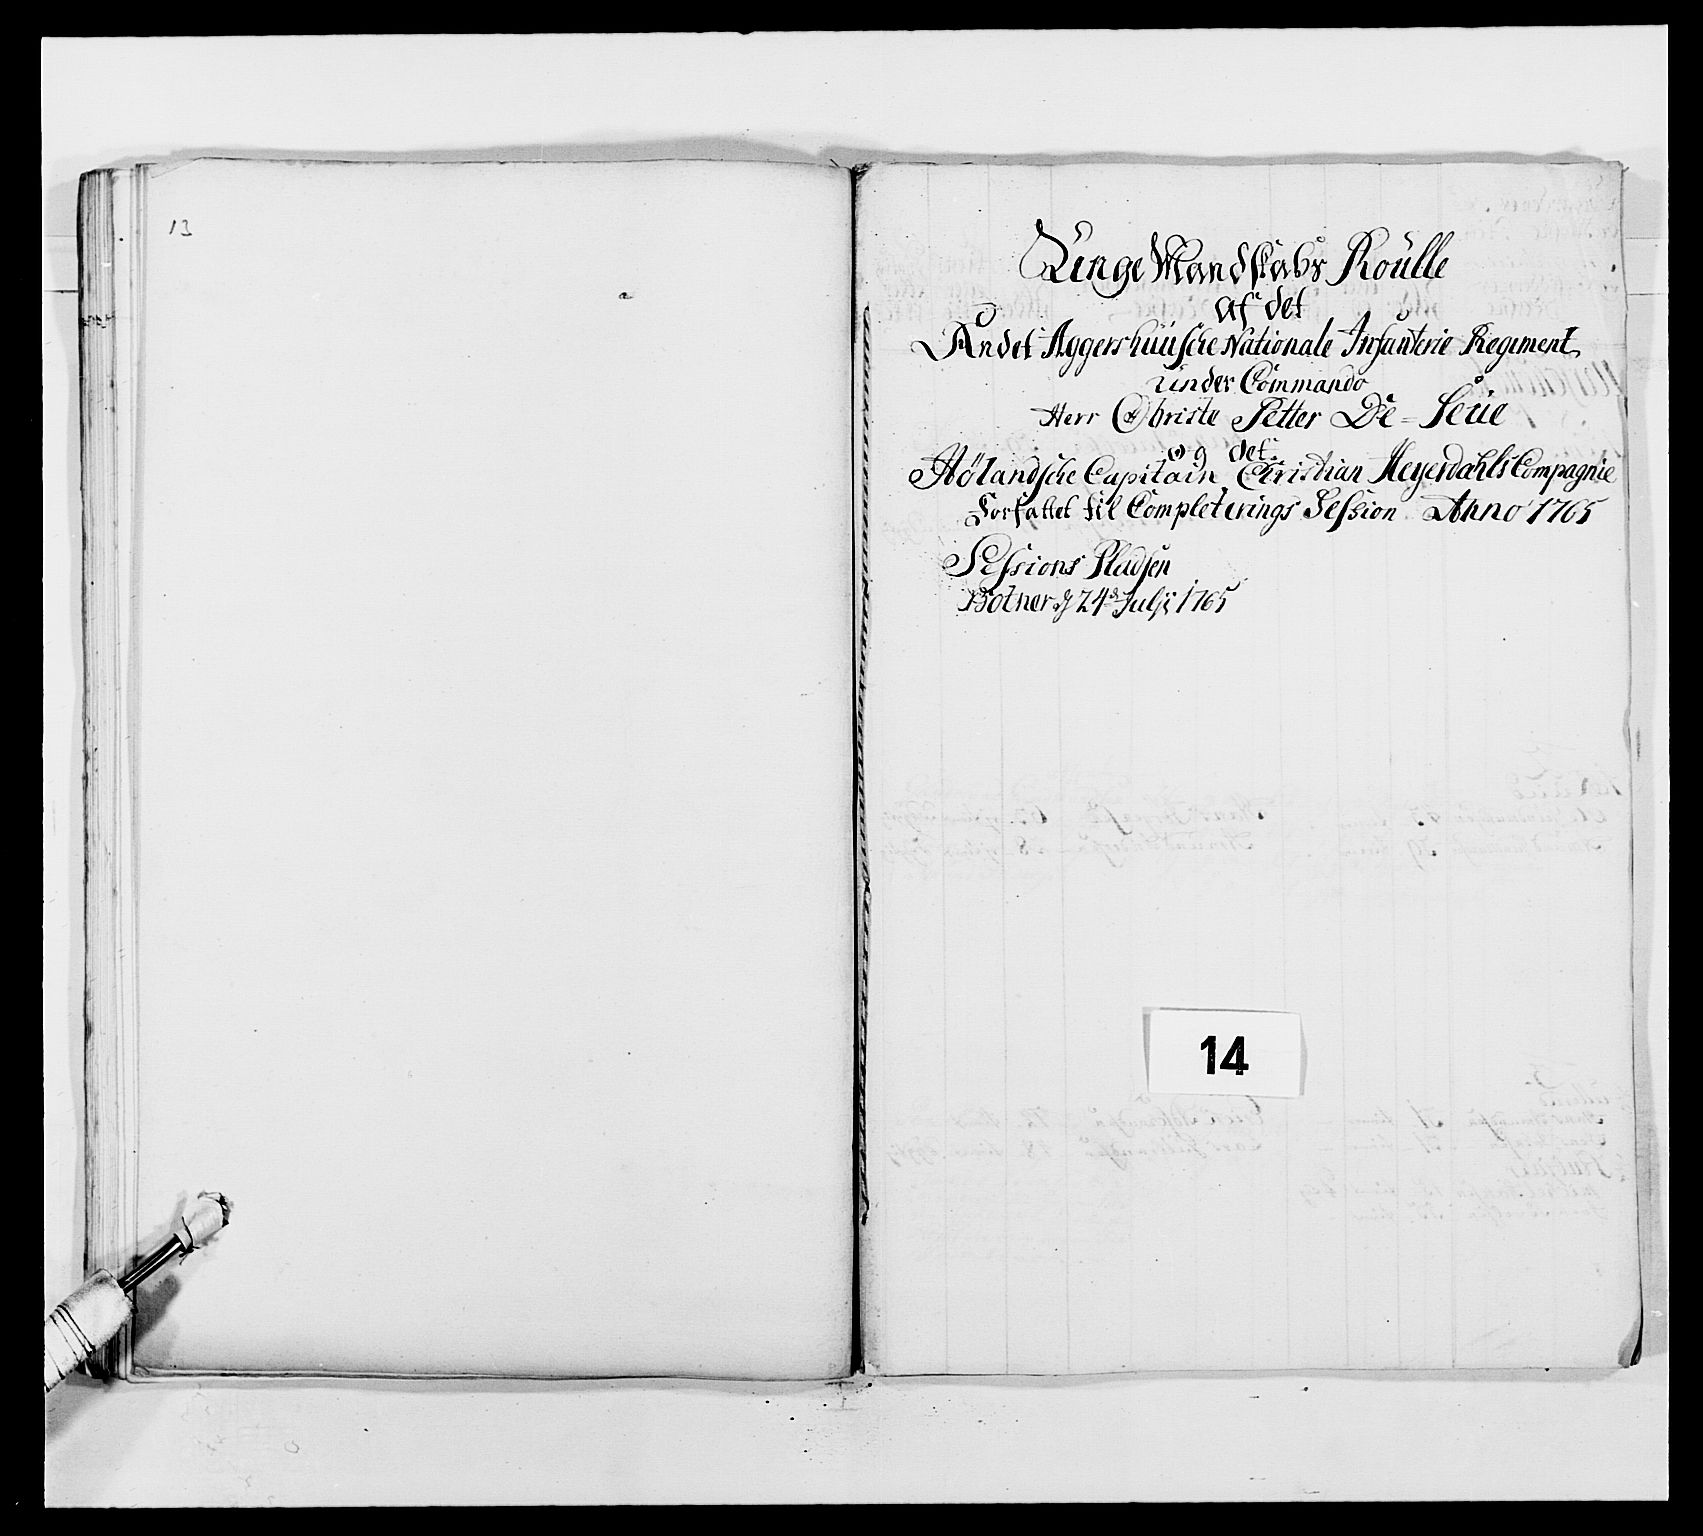 13
Unge Mandskabs Roulle
af det
Andet Aggershuusche Nationale Infanterie Regiment
under Commando
Herr Christe Petter De=Seüe
og det
Hölandsche Capitain Christian Meyerdahls Compagnie
Forfattet til Completerings Session Anno 1765
Sessions Pladsen
Botner d 24de Julji 1765
14